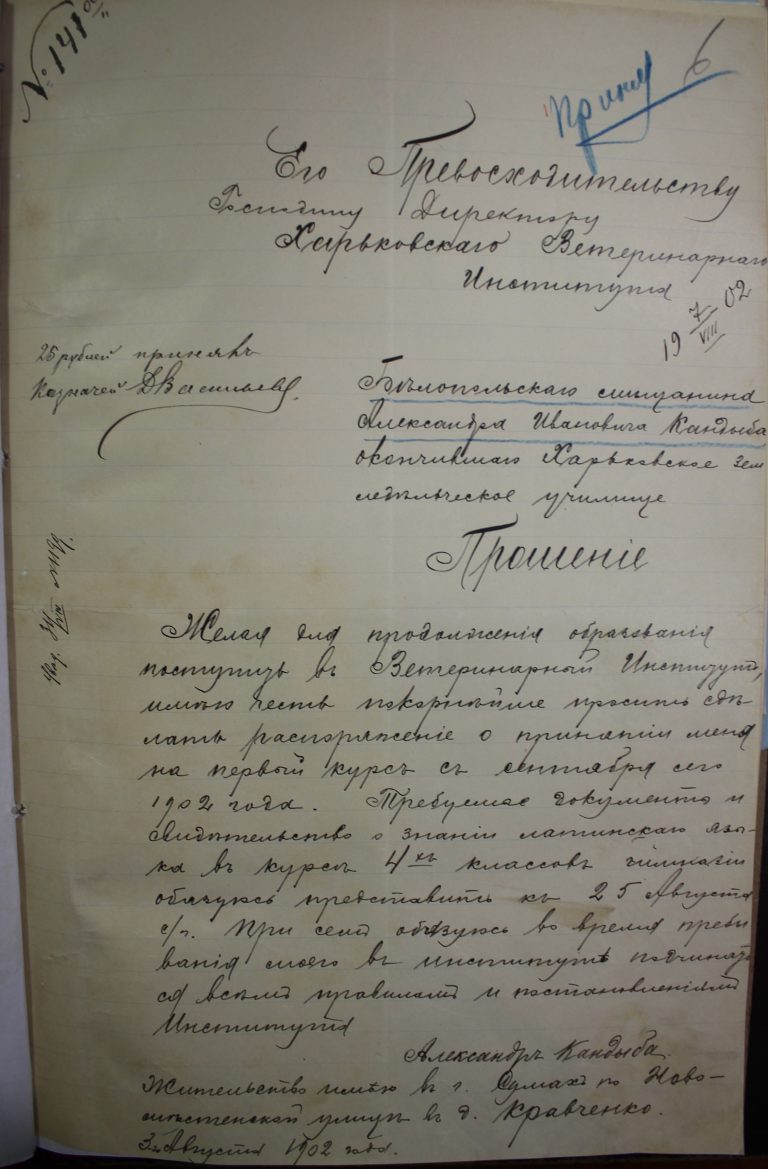 № 141
6
Приня
Его Превосходительству
Господину Директору
Харьковскаго Ветеринарнаго
Института
19 7/VIII 02
25 рублей принялъ
Казначей Д Васильевъ.
Бѣлопольскаго мѣщанина
Александра Ивановича Кандыба
окончившаго Харьковское Зем
ледѣльческое училище
Прошеніе
Желая для продолженія образованія
поступить въ Ветеринарный Институтъ,
имѣю честь покорнѣйше просить сдѣ-
лать распоряженіе о принятіи меня
на первый курсъ съ сентября сего
1902 года. Требуемые документы и
свидѣтельство о знаніи латинскаго язы-
ка въ курсѣ 4хъ классовъ гимназіи
обязуюсь представить къ 25 Августа
с/г. При семъ обязуюсь во время пребы
ванія моего въ институтѣ подчинять
ся всѣмъ правиламъ и постановленіямъ
Института
Александръ Кандыба.
Жительство имѣю въ г. Сумахъ по Ново-
мѣстенской улицѣ въ д. Кравченко.
3 Августа 1902 года.